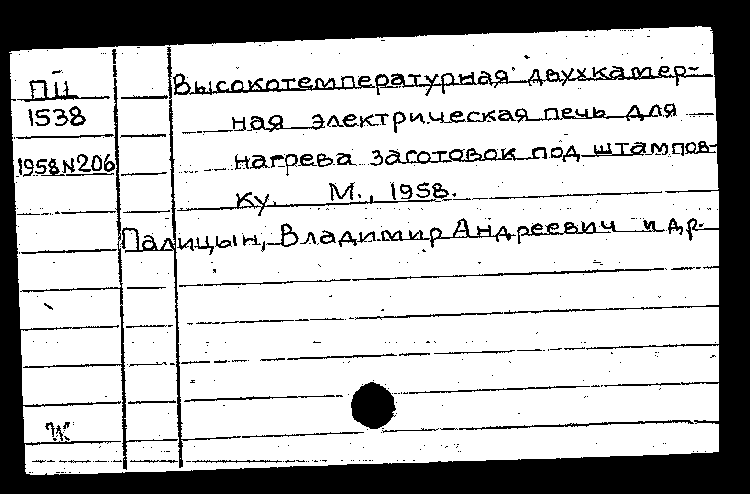 ПЦ
1538
1958N206
Высокотемпературная двухкамер-
ная электрическая печь для
нагрева заготовок под штампов-
ку. М., 1958.
Палицын, Владимир Андреевич и др.